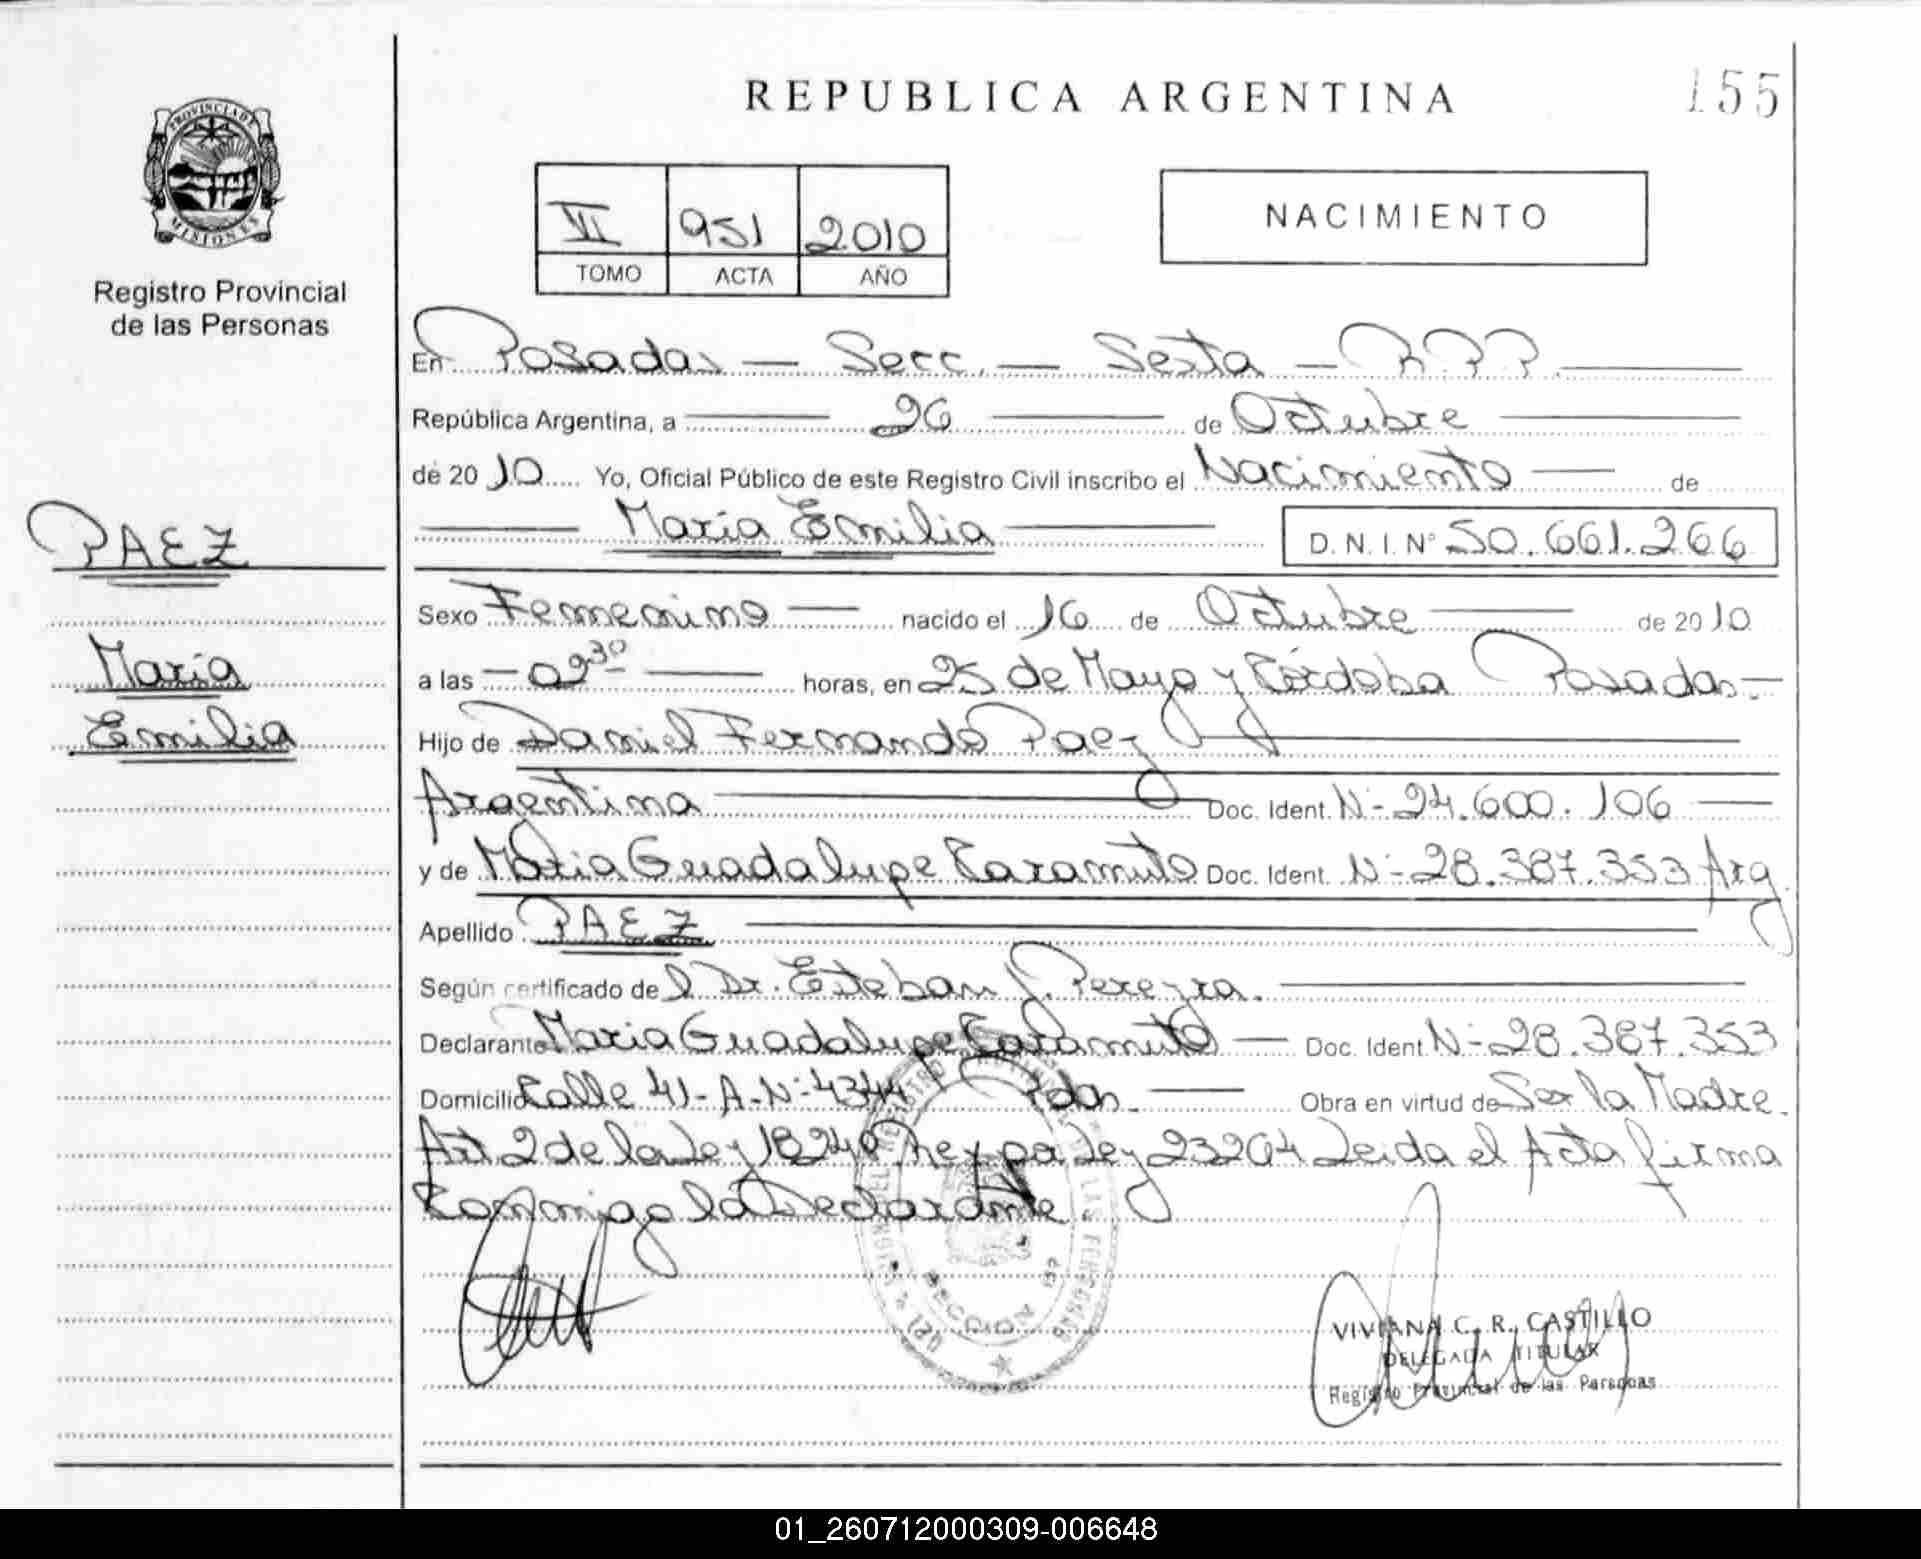 REPUBLICA ARGENTINA
155
PROVINCIA DE
MISIONES
Registro Provincial
de las Personas
VI 951 2010
TOMO ACTA AÑO
NACIMIENTO
En Posadas — Secc. — Sexta — R P P.
República Argentina, a 26 de Octubre
de 2010 Yo, Oficial Público de este Registro Civil inscribo el Nacimiento de
María Emilia D. N. I. Nº 50.661.266
PAEZ
María
Emilia
Sexo Femenino nacido el 16 de Octubre de 2010
a las — 09 30 — horas, en 25 de Mayo y Córdoba Posadas.—
Hijo de Daniel Fernando Paez
Argentina Doc. Ident. N- 24.600.106
y de Maria Guadalupe Caramuto Doc. Ident. N- 28.387.353 Arg
Apellido PAEZ
Según certificado de l Dr. Esteban J. Pereyra.
Declarante Maria Guadalupe Caramuto — Doc. Ident. N- 28.387.353
Domicilio Calle 41-A-N- 4344 Pdas. — Obra en virtud de Ser la Madre.
Art 2 de la Ley 18248 Ley 23264 Leida el Acta firma
Conmigo la Declarante
SECCION 6ª
VIVIANA C. R. CASTILLO
DELEGADA TITULAR
Registro Provincial de las Personas
01_260712000309-006648